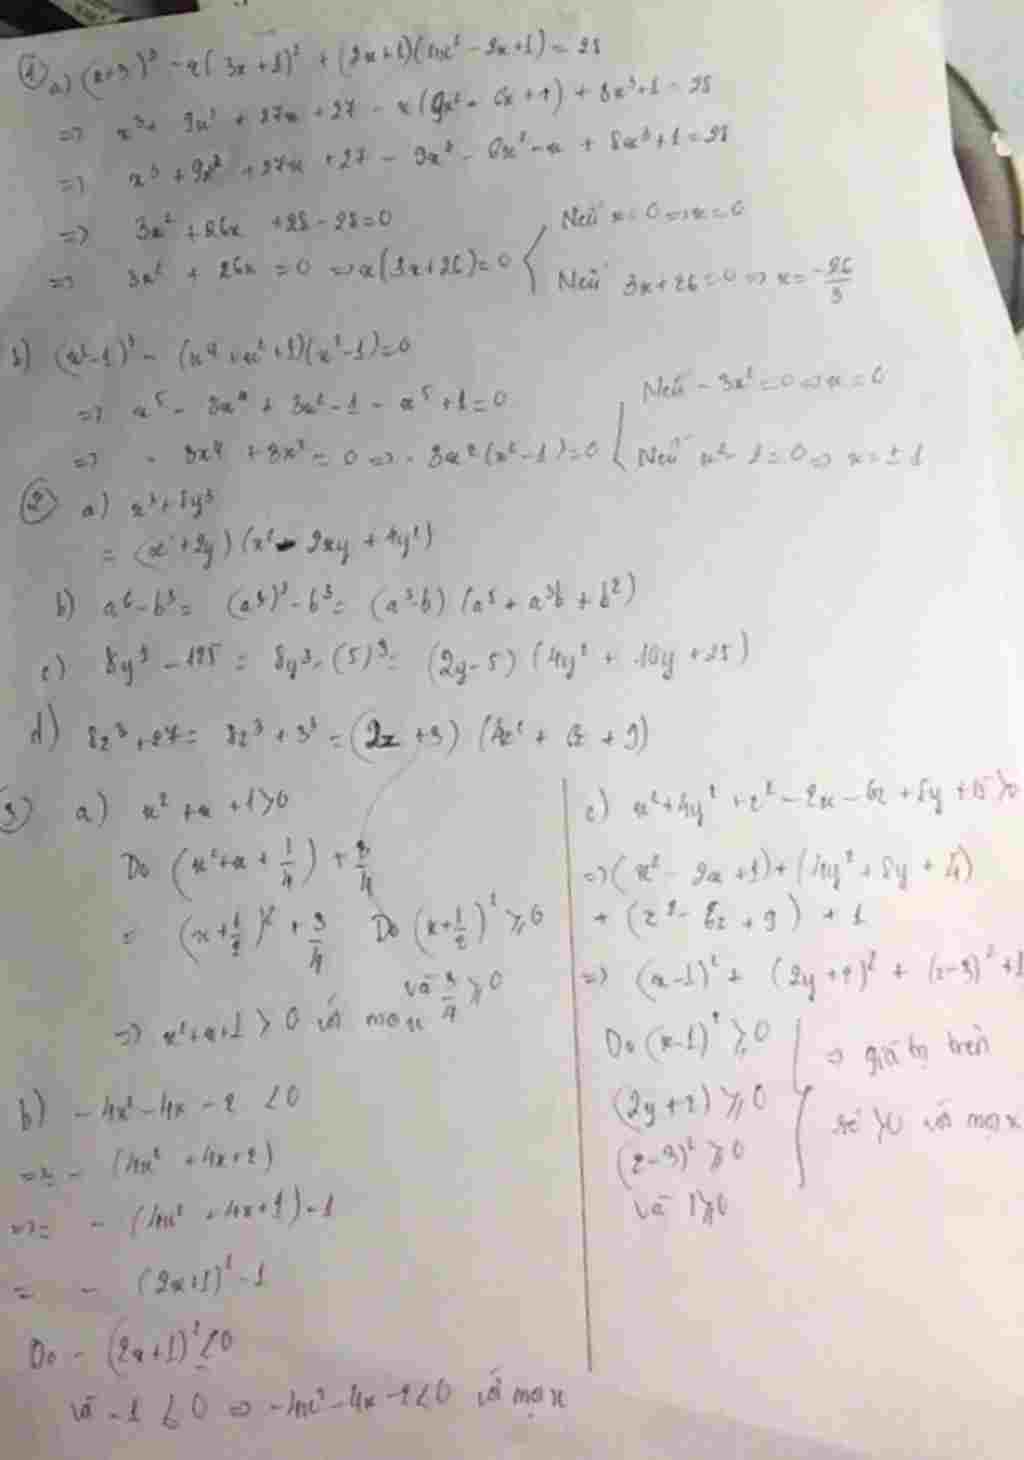 ① a) (x+3)³ - x(3x+1)² + (2x+1)(4x² - 2x+1) = 28
=> x³ + 9x² + 27x + 27 - x(9x² + 6x + 1) + 8x³+1 = 28
=> x³ + 9x² + 27x + 27 - 9x³ - 6x² - x + 8x³+1 = 28
=> 3x² + 26x + 28 - 28 = 0
=> 3x² + 26x = 0 => x(3x+26) = 0
Nếu x = 0 => x = 0
Nếu 3x+26 = 0 => x = -26/3
b) (x²-1)³ - (x⁴+x²+1)(x²-1) = 0
=> x⁵ - 3x⁴ + 3x² - 1 - x⁵ + 1 = 0
=> - 3x⁴ + 3x² = 0 => - 3x²(x²-1) = 0
Nếu - 3x² = 0 => x = 0
Nếu x² - 1 = 0 => x = ± 1
② a) x³ + 8y³
= (x + 2y)(x² - 2xy + 4y²)
b) a⁶ - b³ = (a²)³ - b³ = (a² - b)(a⁵ + a²b + b²)
c) 8y³ - 125 = 8y³ - (5)³ = (2y-5)(4y² + 10y + 25)
d) 8z³ + 27 = 8z³ + 3³ = (2z + 3)(4z² + 6z + 9)
③ a) x² + x + 1 > 0
Do (x² + x + 1/4) + 3/4
= (x + 1/2)² + 3/4 Do (x + 1/2)² ≥ 0
và 3/4 ≥ 0
=> x² + x + 1 > 0 với mọi x
b) - 4x² - 4x - 2 < 0
=> = - (4x² + 4x + 2)
=> = - (4x² + 4x + 1) - 1
= - (2x+1)² - 1
Do - (2x+1)² ≤ 0
và - 1 < 0 => - 4x² - 4x - 2 < 0 với mọi x
c) x² + 4y² + z² - 2x - 6z + 8y + 15 > 0
=> (x² - 2x + 1) + (4y² + 8y + 4)
+ (z² - 6z + 9) + 1
=> (x-1)² + (2y+2)² + (z-3)² + 1
Do (x-1)² ≥ 0
(2y+2) ≥ 0
(z-3)² ≥ 0
và 1 ≥ 0
=> giá trị trên
sẽ > 0 với mọi x